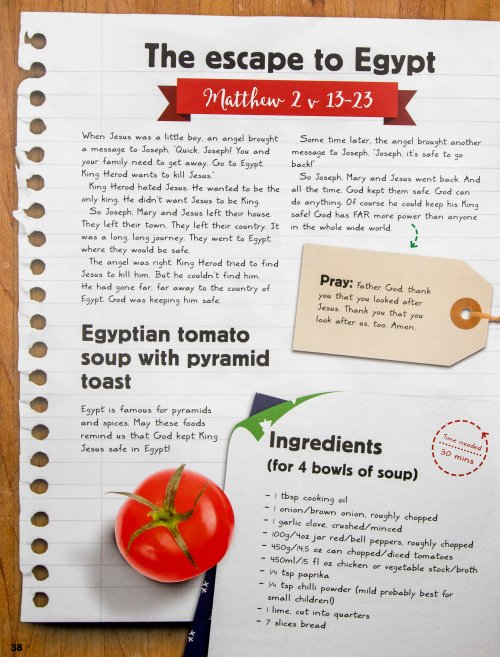 The escape to Egypt
Matthew 2 v 13-23
When Jesus was a little boy, an angel brought
a message to Joseph. "Quick, Joseph! You and
your family need to get away. Go to Egypt.
King Herod wants to kill Jesus."
King Herod hated Jesus. He wanted to be the
only king. He didn't want Jesus to be King.
So Joseph, Mary and Jesus left their house.
They left their town. They left their country. It
was a long, long journey. They went to Egypt,
where they would be safe.
The angel was right. King Herod tried to find
Jesus to kill him. But he couldn't find him.
He had gone far, far away to the country of
Egypt. God was keeping him safe.
Some time later, the angel brought another
message to Joseph. "Joseph, it's safe to go
back!"
So Joseph, Mary and Jesus went back. And
all the time, God kept them safe. God can
do anything. Of course he could keep his King
safe! God has FAR more power than anyone
in the whole wide world.
Pray: Father God, thank
you that you looked after
Jesus. Thank you that you
look after us, too. Amen.
Egyptian tomato
soup with pyramid
toast
Egypt is famous for pyramids
and spices. May these foods
remind us that God kept King
Jesus safe in Egypt!
Ingredients
(for 4 bowls of soup)
Time needed
30 mins
- 1 tbsp cooking oil
- 1 onion/brown onion, roughly chopped
- 1 garlic clove, crushed/minced
- 100g/4oz jar red/bell peppers, roughly chopped
- 450g/14.5 oz can chopped/diced tomatoes
- 450ml/15 fl oz chicken or vegetable stock/broth
- ¼ tsp paprika
- ¼ tsp chilli powder (mild probably best for
small children!)
- 1 lime, cut into quarters
- 7 slices bread
38